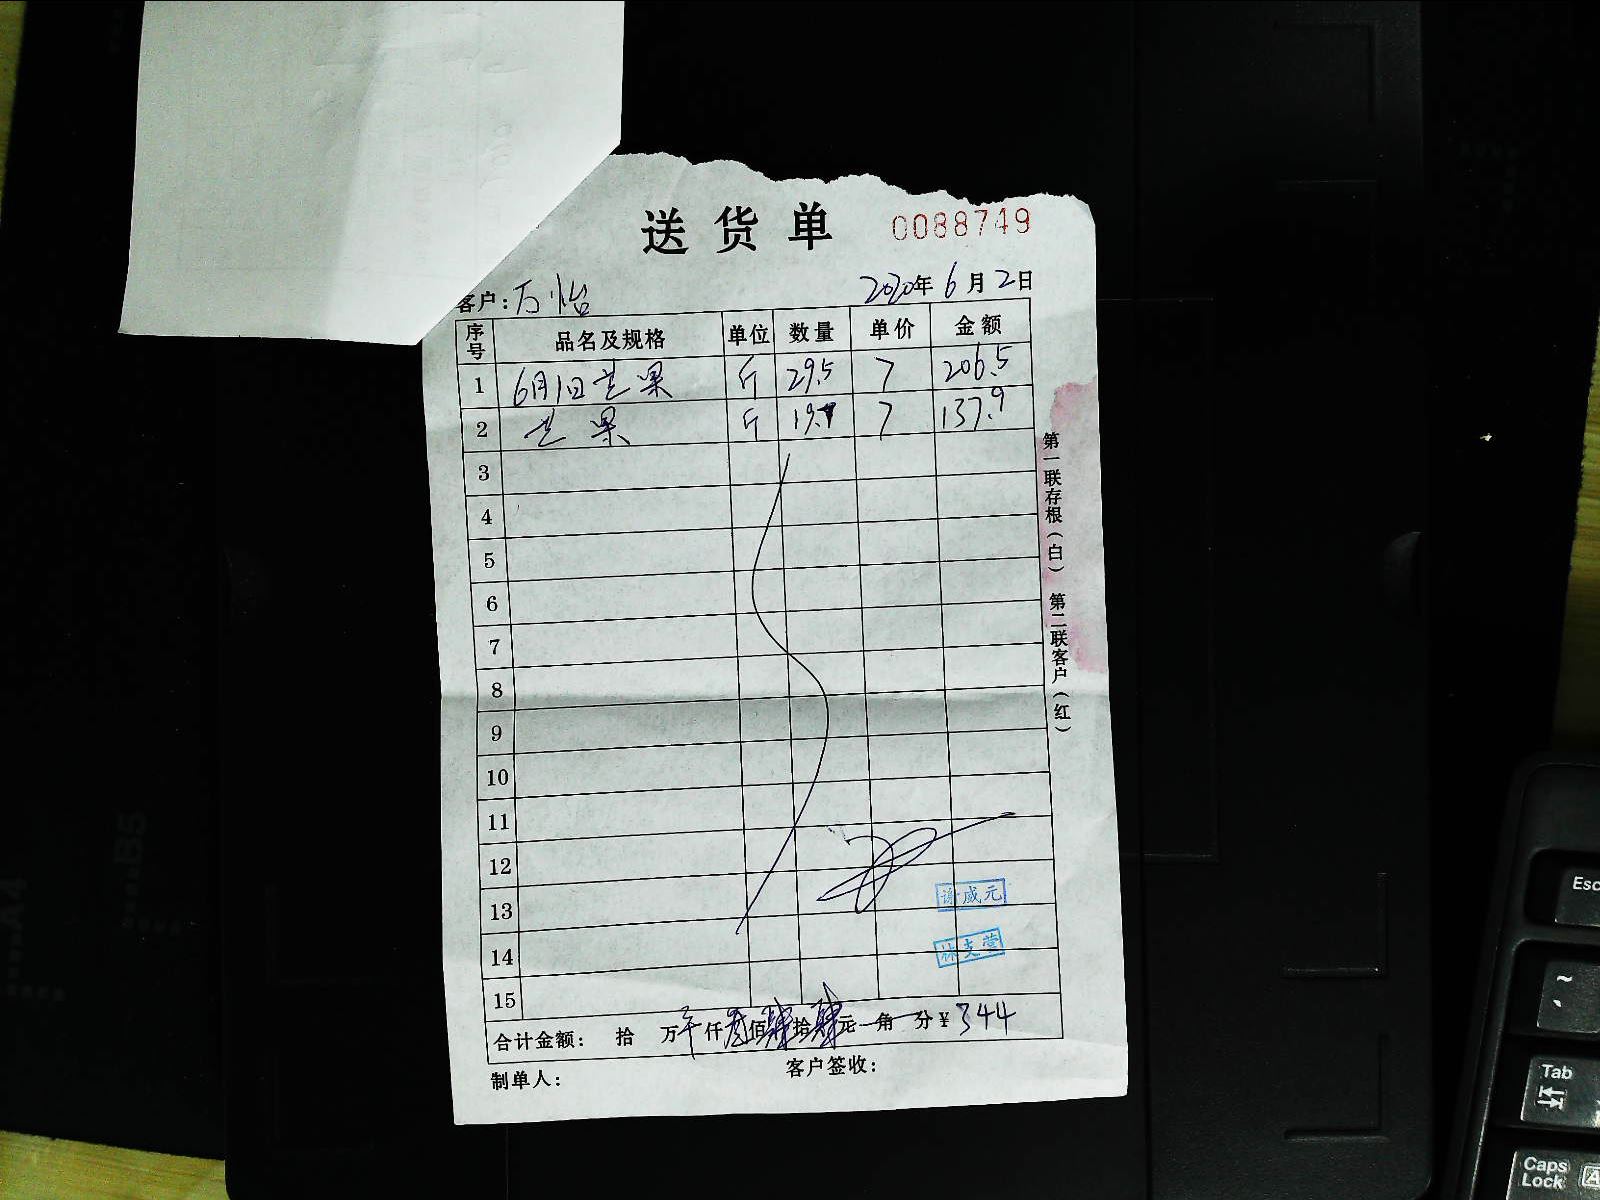 送货单 0088749
客户: 万怡 2020年6月2日
序号 品名及规格 单位 数量 单价 金额
1 6月1日芒果 斤 29.5 7 206.5
2 芒果 斤 19.7 7 137.9
3
4
5
6
7
8
9
10
11
12
13
14
15
谢威元
林支营
合计金额: 拾 万 仟叁佰肆拾肆元 角 分¥344
制单人: 客户签收:
第一联存根(白) 第二联客户(红)
B5
A4
Esc
~
Tab
Caps Lock
A